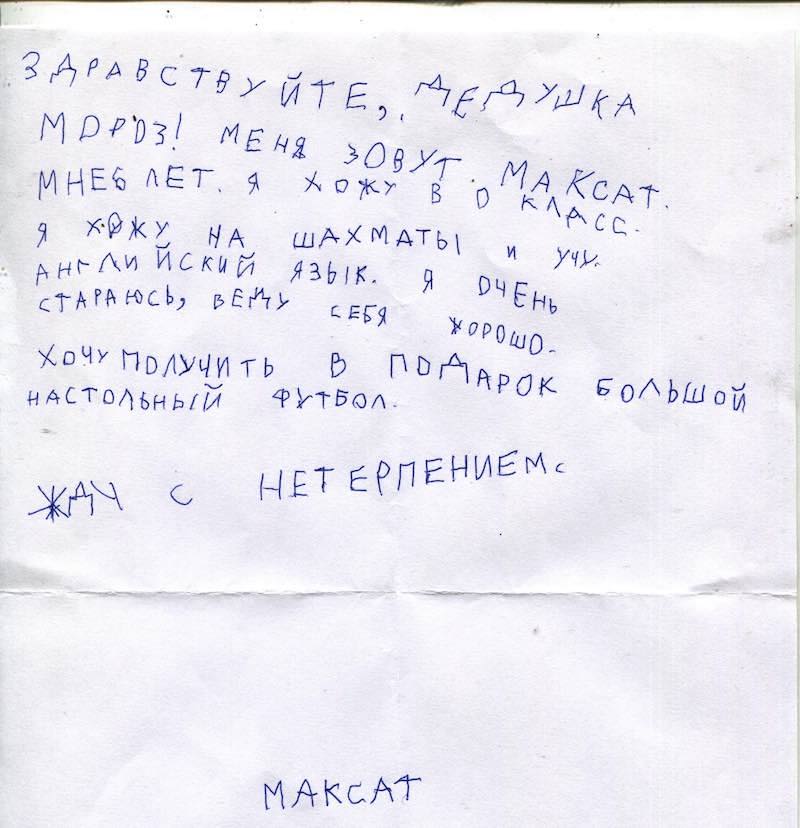 ЗДРАВСТВУЙТЕ, ДЕДУШКА
МОРОЗ! МЕНЯ ЗОВУТ МАКСАТ.
МНЕ 6 ЛЕТ. Я ХОЖУ В 0 КЛАСС.
Я ХОЖУ НА ШАХМАТЫ И УЧУ
АНГЛИЙСКИЙ ЯЗЫК. Я ОЧЕНЬ
СТАРАЮСЬ, ВЕДУ СЕБЯ ХОРОШО.
ХОЧУ ПОЛУЧИТЬ В ПОДАРОК БОЛЬШОЙ
НАСТОЛЬНЫЙ ФУТБОЛ.
ЖДУ С НЕТЕРПЕНИЕМ.
МАКСАТ